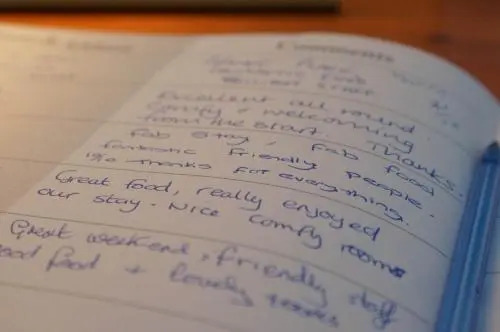 Comments
Great Place
Fantastic Food
Brilliant Staff
Excellent all round.
Comfy + welcoming
from the start. Thanks.
Fab stay, Fab food
fantastic friendly people.
Thanks for everything.
Great food, really enjoyed
our stay. Nice comfy rooms
Great weekend, friendly staff
good food + lovely rooms